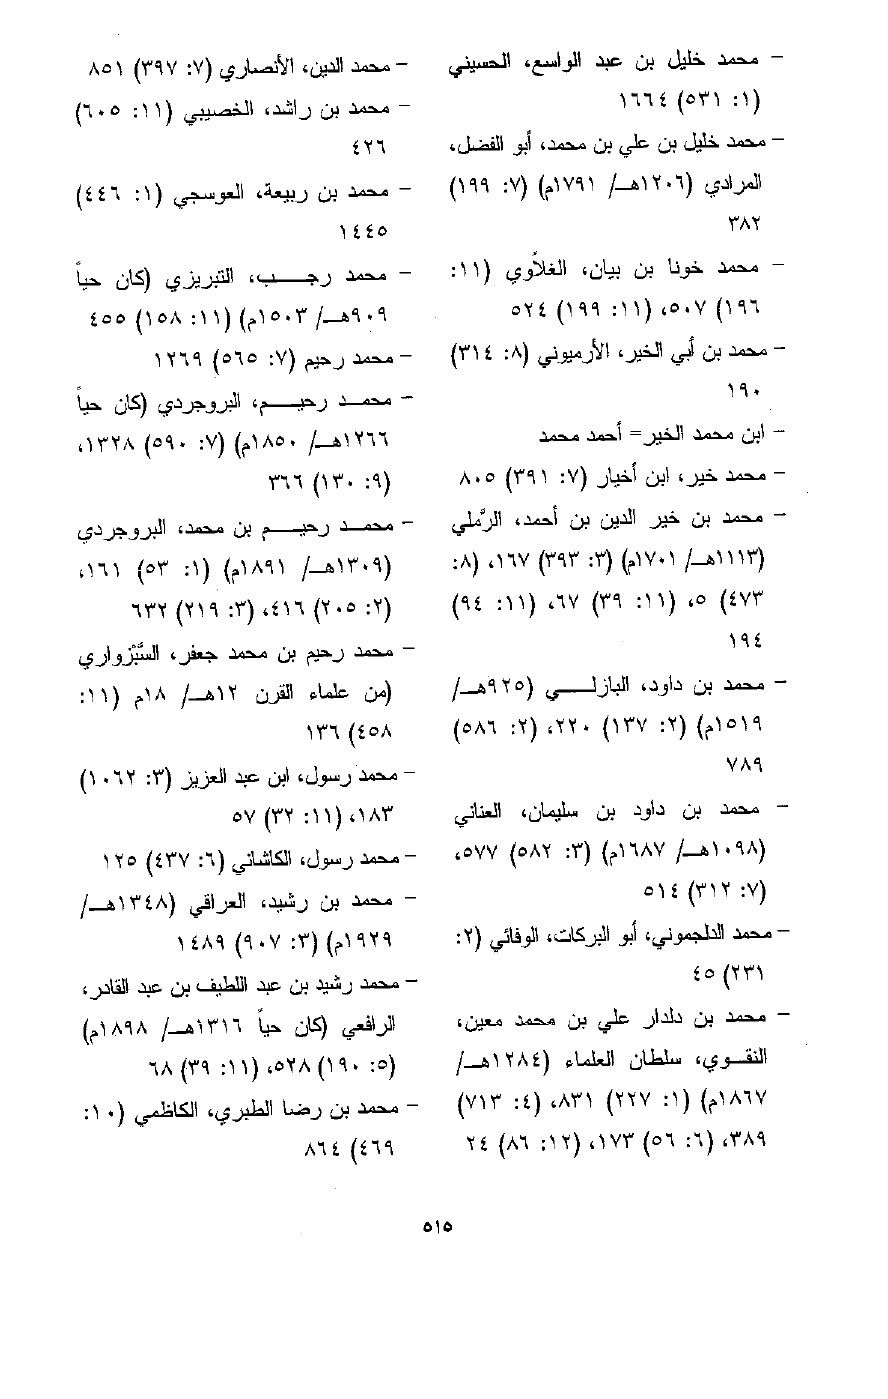 - محمد خليل بن عبد الواسع، الحسيني
(١: ٥٣١) ١٦٦٤
- محمد خليل بن علي بن محمد، أبو الفضل،
المرادي (١٢٠٦هـ/ ١٧٩١م) (٧: ١٩٩)
٣٨٢
- محمد خونا بن بيان، الغلاَّوي (١١:
١٩٦) ٥٠٧، (١١: ١٩٩) ٥٢٤
- محمد بن أبي الخير، الأرميوني (٨: ٣١٤)
١٩٠
- ابن محمد الخير= أحمد محمد
- محمد خير، ابن أخيار (٧: ٣٩١) ٨٠٥
- محمد بن خير الدين بن أحمد، الرَّملي
(١١١٣هـ/ ١٧٠١م) (٣: ٣٩٣) ١٦٧، (٨:
٤٧٣) ٥، (١١: ٣٩) ٦٧، (١١: ٩٤)
١٩٤
- محمد بن داود، البازلـي (٩٢٥هـ/
١٥١٩م) (٢: ١٣٧) ٢٢٠، (٢: ٥٨٦)
٧٨٩
- محمد بن داود بن سليمان، العناني
(١٠٩٨هـ/ ١٦٨٧م) (٣: ٥٨٢) ٥٧٧،
(٧: ٣١٢) ٥١٤
- محمد الدلجموني، أبو البركات، الوفائي (٢:
٢٣١) ٤٥
- محمد بن دلدار علي بن محمد معين،
النقـوي، سلطان العلماء (١٢٨٤هـ/
١٨٦٧م) (١: ٢٢٧) ٨٣١، (٤: ٧١٣)
٣٨٩، (٦: ٥٦) ١٧٣، (١٢: ٨٦) ٢٤
- محمد الدين، الأنصاري (٧: ٣٩٧) ٨٥١
- محمد بن راشد، الخصيبي (١١: ٦٠٥)
٤٢٦
- محمد بن ربيعة، العوسجي (١: ٤٤٦)
١٤٤٥
- محمد رجـب، التبريزي (كان حياً
٩٠٩هـ/ ١٥٠٣م) (١١: ١٥٨) ٤٥٥
- محمد رحيم (٧: ٥٦٥) ١٢٦٩
- محمـد رحيـم، البروجردي (كان حياً
١٢٦٦هـ/ ١٨٥٠م) (٧: ٥٩٠) ١٣٢٨،
(٩: ١٣٠) ٣٦٦
- محمـد رحيـم بن محمد، البروجردي
(١٣٠٩هـ/ ١٨٩١م) (١: ٥٣) ١٦١،
(٢: ٢٠٥) ٤١٦، (٣: ٢١٩) ٦٣٢
- محمد رحيم بن محمد جعفر، السَّبْزواري
(من علماء القرن ١٢هـ/ ١٨م (١١:
٤٥٨) ١٣٦
- محمد رسول، ابن عبد العزيز (٣: ١٠٦٢)
١٨٣، (١١: ٣٢) ٥٧
- محمد رسول، الكاشاني (٦: ٤٣٧) ١٢٥
- محمد بن رشيد، العراقي (١٣٤٨هـ/
١٩٢٩م) (٣: ٩٠٧) ١٤٨٩
- محمد رشيد بن عبد اللطيف بن عبد القادر،
الرافعي (كان حياً ١٣١٦هـ/ ١٨٩٨م)
(٥: ١٩٠) ٥٢٨، (١١: ٣٩) ٦٨
- محمد بن رضا الطبري، الكاظمي (١٠:
٤٦٩) ٨٦٤
٥١٥